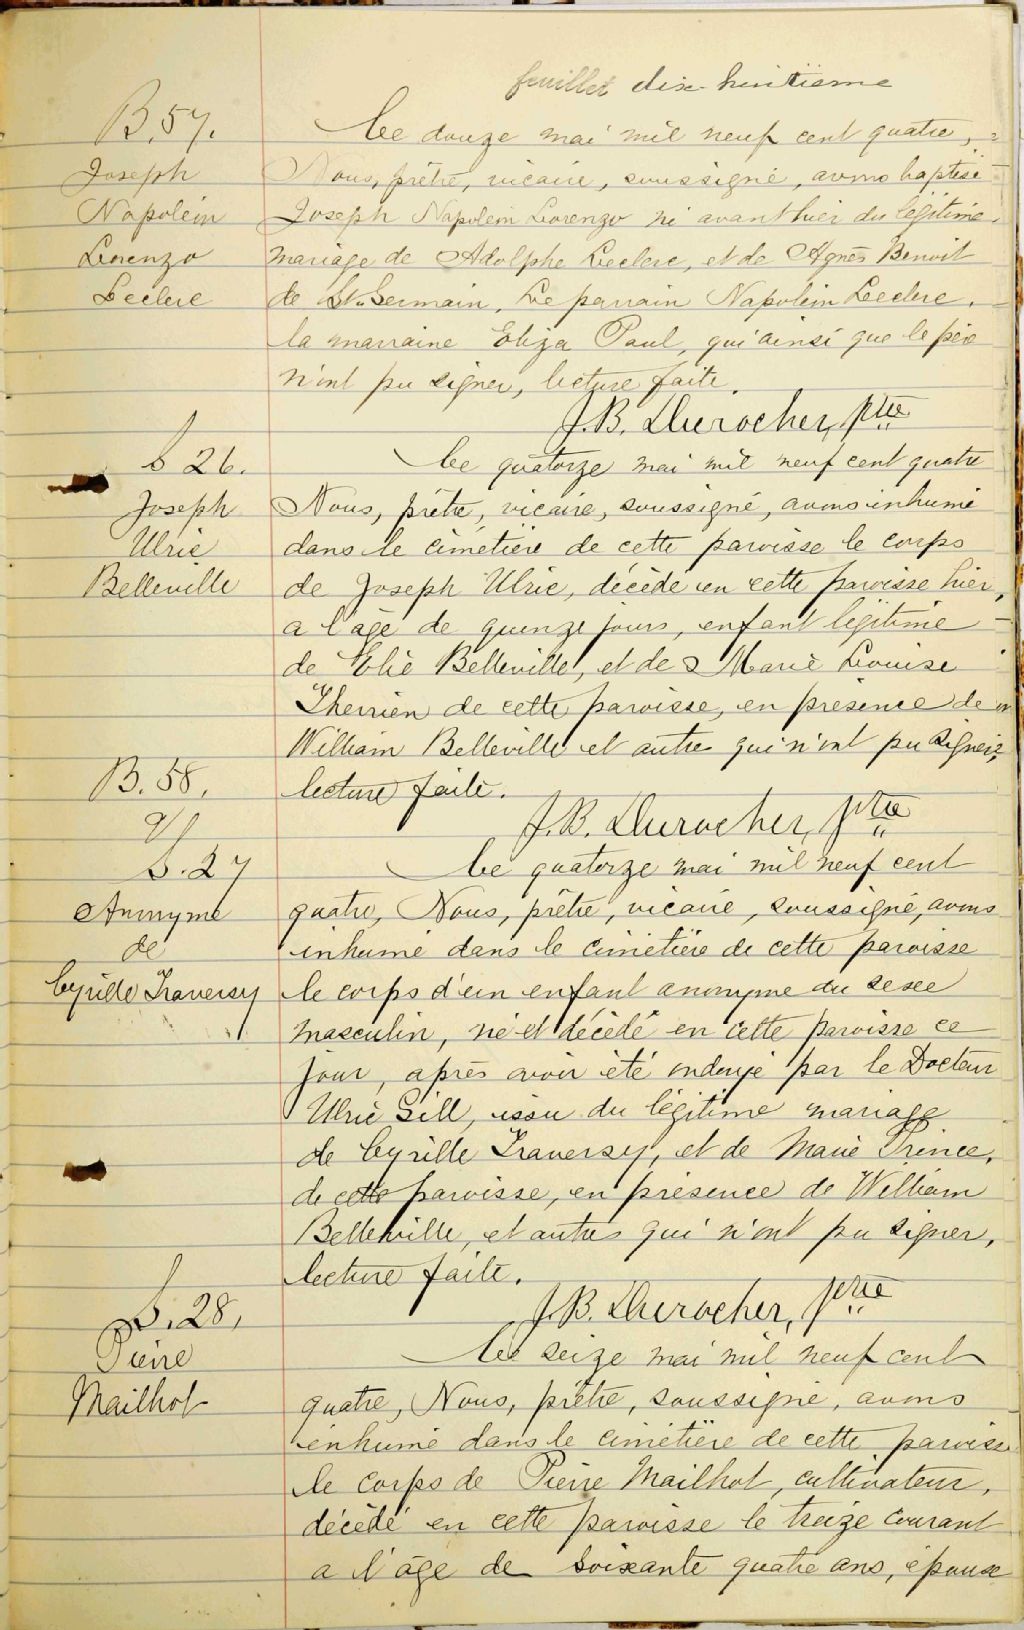 feuillet dix-huitième
B. 57.
Joseph
Napoléon
Lorenzo
Leclerc
Ce douze mai mil neuf cent quatre,
Nous, prêtre, vicaire, soussigné, avons baptisé
Joseph Napoléon Lorenzo né avant hier du légitime
mariage de Adolphe Leclerc, et de Agnès Benoit
de St. Germain. Le parrain Napoléon Leclerc,
la marraine Eliza Paul, qui ainsi que le père
n'ont pu signer, lecture faite.
J. B. Durocher, ptre
S 26.
Joseph
Ulric
Belleville
Ce quatorze mai mil neuf cent quatre
Nous, prêtre, vicaire, soussigné, avons inhumé
dans le cimetière de cette paroisse le corps
de Joseph Ulric, décédé en cette paroisse hier,
a l'âge de quinze jours, enfant légitime
de Elie Belleville, et de Marie Louise
Therrien de cette paroisse, en présence de
William Belleville et autres qui n'ont pu signer,
lecture faite.
J. B. Durocher, ptre
B. 58.
S. 27
Anonyme
de
Cyrille Traversy
Ce quatorze mai mil neuf cent
quatre, Nous, prêtre, vicaire, soussigné, avons
inhumé dans le cimetière de cette paroisse
le corps d'un enfant anonyme du sexe
masculin, né et décédé en cette paroisse ce
jour, après avoir été ondoyé par le Docteur
Ulric Gill, issu du légitime mariage
de Cyrille Traversy, et de Marie Prince,
de cette paroisse, en présence de William
Belleville, et autres qui n'ont pu signer,
lecture faite.
J. B. Durocher, ptre
S. 28,
Pierre
Mailhot
Ce seize mai mil neuf cent
quatre, Nous, prêtre, soussigné, avons
inhumé dans le cimetière de cette paroisse
le corps de Pierre Mailhot, cultivateur,
décédé en cette paroisse le treize courant
a l'âge de soixante quatre ans, époux